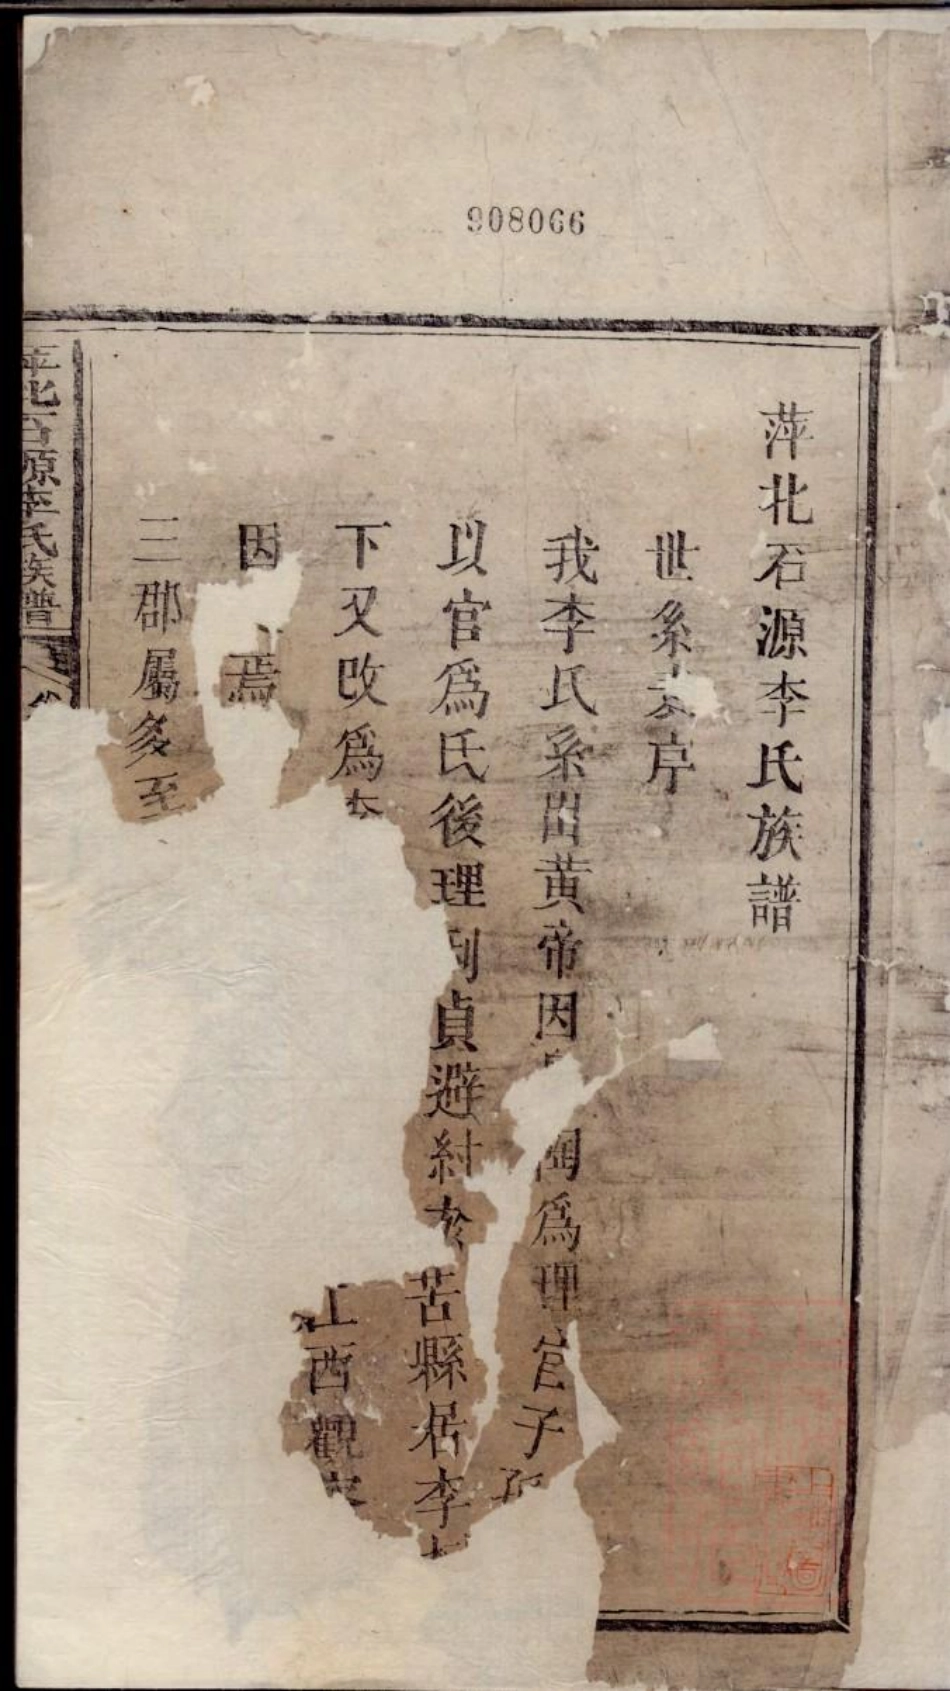 908066
萍北石源李氏族譜
世系表序
我李氏系出黃帝因陶爲理官子
以官爲氏後理利貞避紂於苦縣居李
下又改爲江西觀
因焉
三郡屬多至
萍北石源李氏族譜